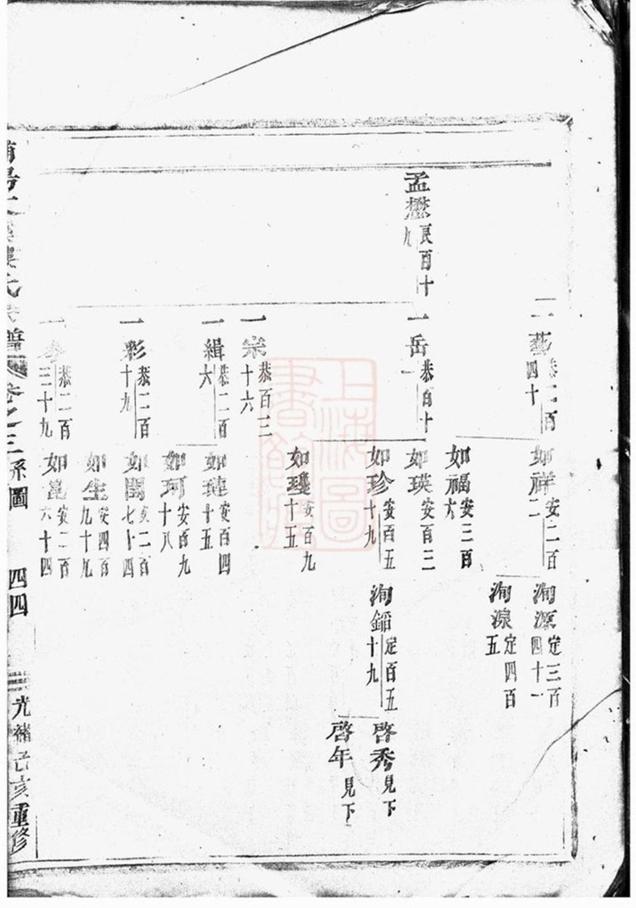 孟懋 良百十九
一藝 恭二百四十
如祥 安二百二
洵源 定三百四十一
洵湶 定四百五
一岳 恭百十一
如福 安三百六
如瑛 安百三
如珍 安百五十九
洵錨 定百五十九
啓秀 見下
啓年 見下
安百九十五
一宗 恭百三十六
一緝 恭二百六
如璉 安百四十五
如珂 安百九十八
一彩 恭二百十九
如閏 安二百七十四
如生 安四百九十九
恭二百三十九
如崑 安二百六十四
氏宗譜 卷之三 系圖 四四 光緒己亥重修
上海圖書館藏